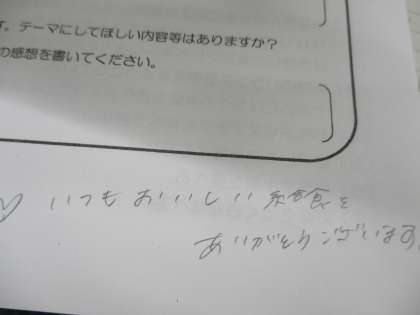 す。テーマにしてほしい内容等はありますか？
の感想を書いてください。
いつもおいしい給食を
ありがとうございます。